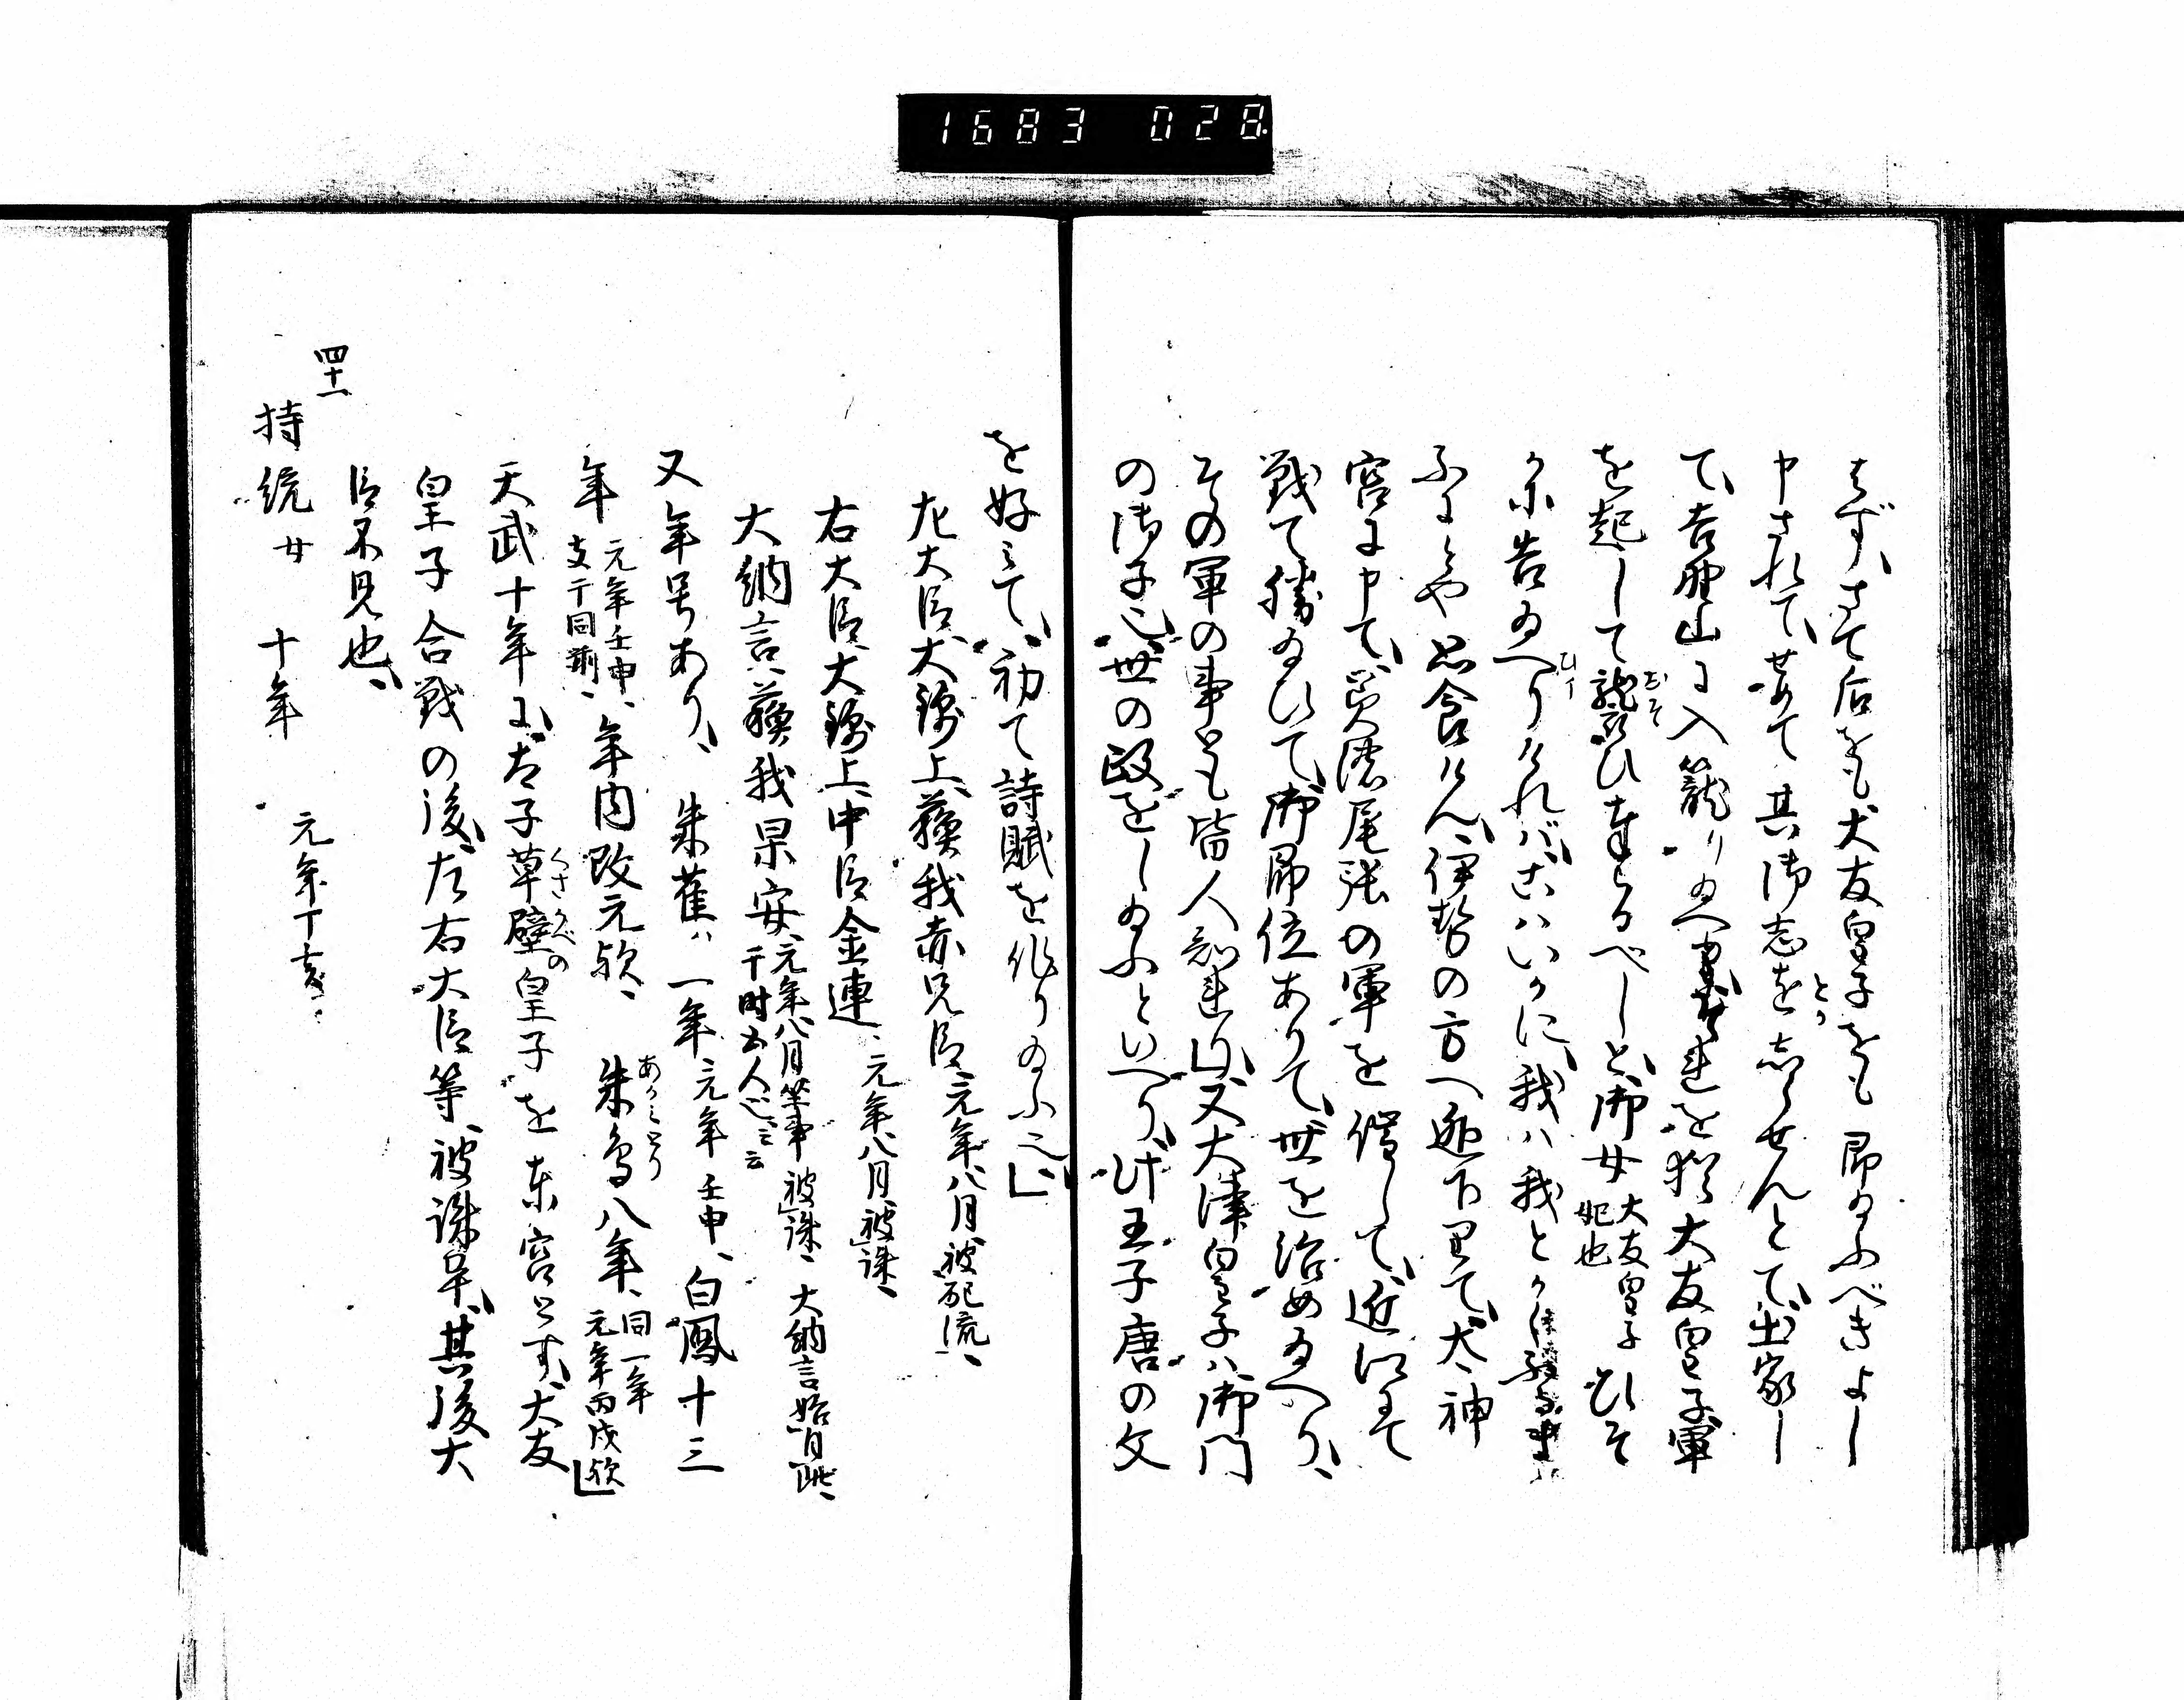 1683 028
はず、さて后をも大友皇子をも即給ふべきよし
申されて、やがて其御志をとかしらせんとて、出家し
て、吉野山に入籠り給へ を猶大友皇子軍
を起して襲おそひ奉るべしと、御女大友皇子妃也ひそ
かに告給へりければ、こはいかに、我は我とか
ふにもや思食けん、伊勢の方へ逃下りて、大神
宮に申て、美濃尾張の軍を催して、近江にて
戦て勝給ひて、御即位ありて、世を治め給へり、
その軍の事ども皆人知り、又大津皇子は御門
の御子也、世の政をし給ふといへり、此王子唐の文
を好みて、初て詩賦を作り給ふ也
左大臣、大錦上、蘇我赤兄臣元年八月、被配流、
右大臣、大錦上、中臣金連、元年八月、被誅、
大納言、蘇我果安、元年八月坐事被誅、大納言始自此、于時五人也云云
又年号あり、朱雀ハ一年元年壬申、白鳳十三
年元年壬申、支干同前、年内改元歟、朱鳥あかみとり八年、同一年元年丙戌歟
天武十年に、太子草壁くさかべの皇子を東宮とす、大友
皇子合戦の後、左右大臣等、被誅畢、其後大
臣不見也、
四十一
持統女 十年 元年丁亥、